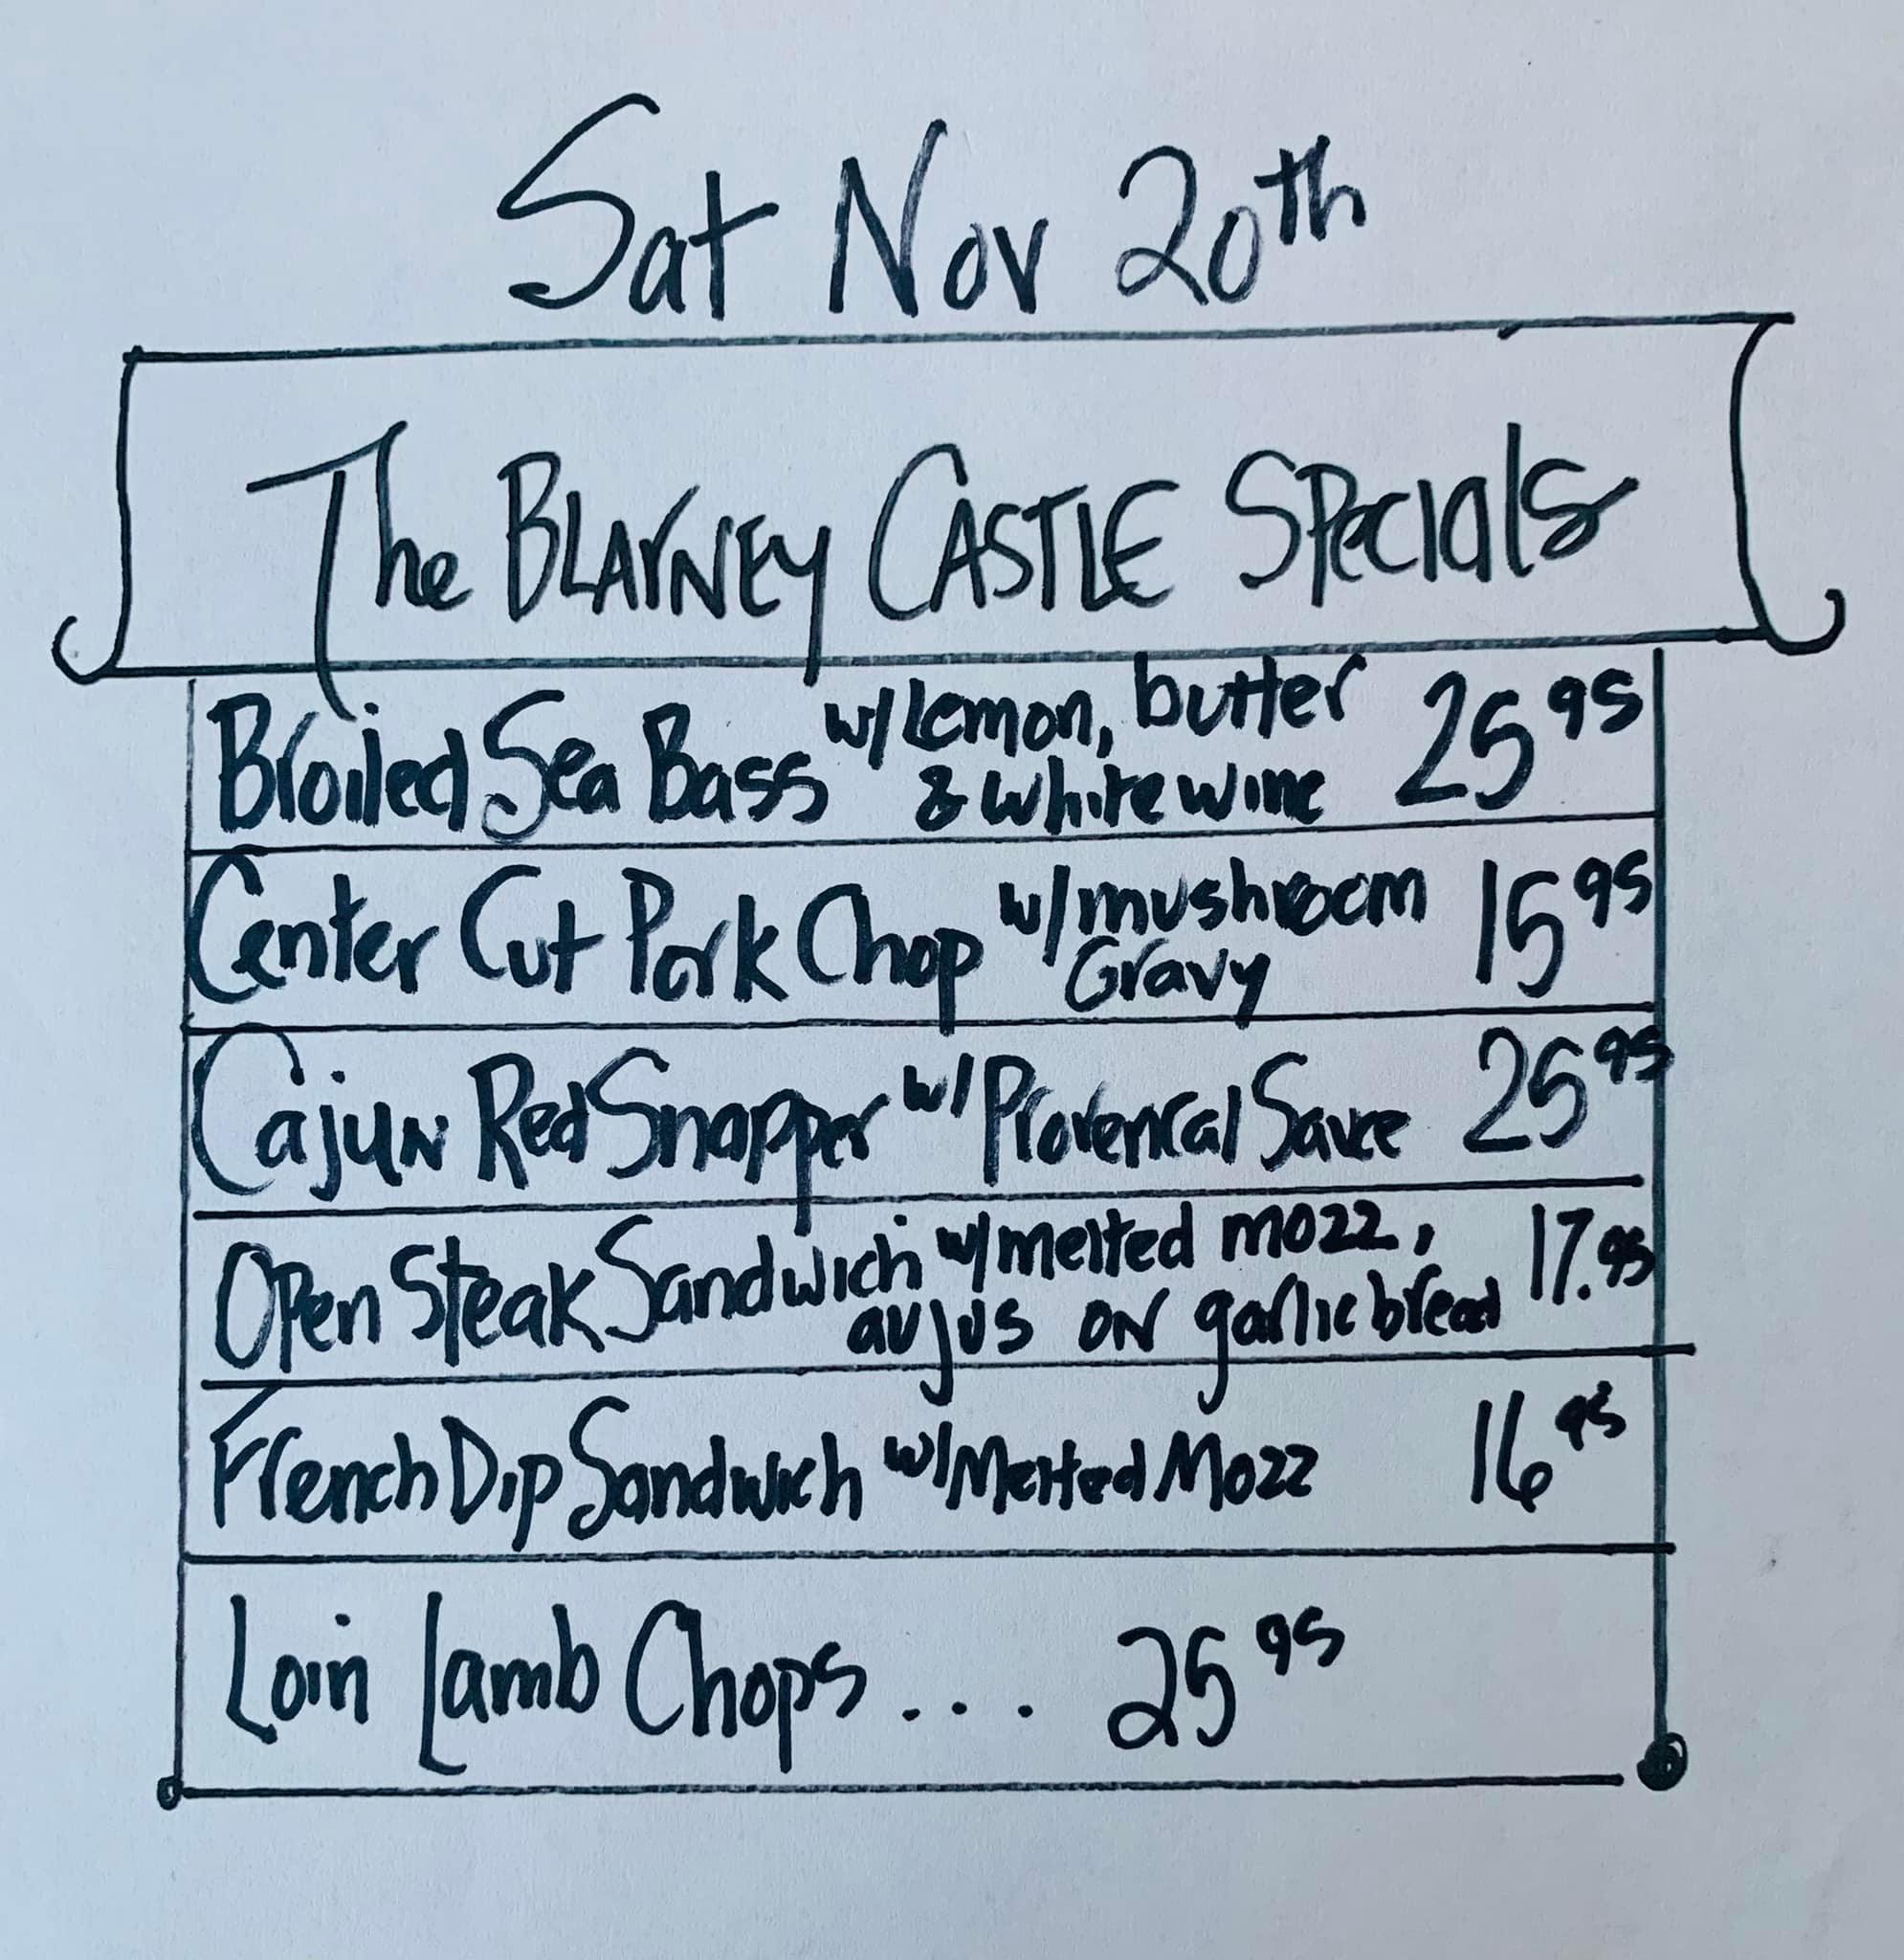 Sat Nov 20th
The BLArNEY CASTLE Specials
Broiled Sea Bass w/Lemon, butter 25 95
& white wine
Center Cut Pork Chop w/mushroom 15 95
Gravy
Cajun Red Snapper w/ Provencal Sauce 25 95
Open Steak Sandwich w/melted mozz, 17.95
aujus on garlic bread
French Dip Sandwich w/Melted Mozz 16 95
Loin Lamb Chops . . . 25 95